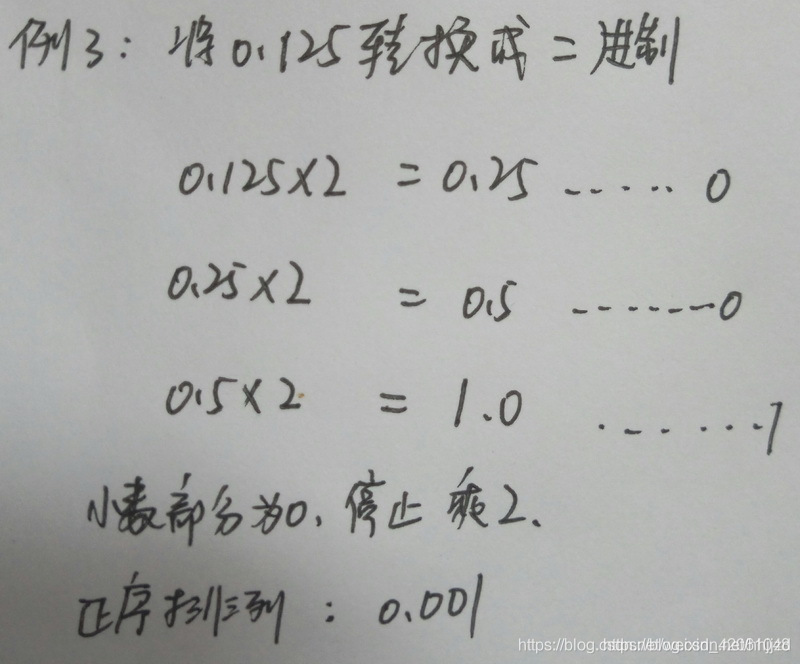 例3: 将0.125转换成二进制
0.125×2 = 0.25 ...... 0
0.25×2 = 0.5 ....... 0
0.5×2 = 1.0 ....... 1
小数部分为0, 停止乘2.
正序排列: 0.001